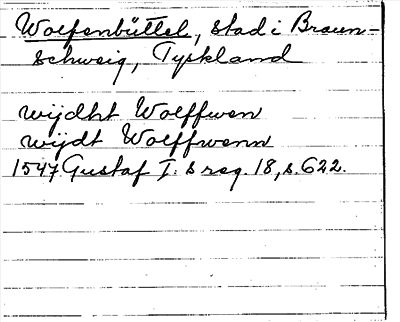 Wolfenbüttel, stad i Braun-
schweig, Tyskland
wijdht Wolffwen
wijdt Wolffwenn
1547 Gustaf I:s reg. 18, s. 622.